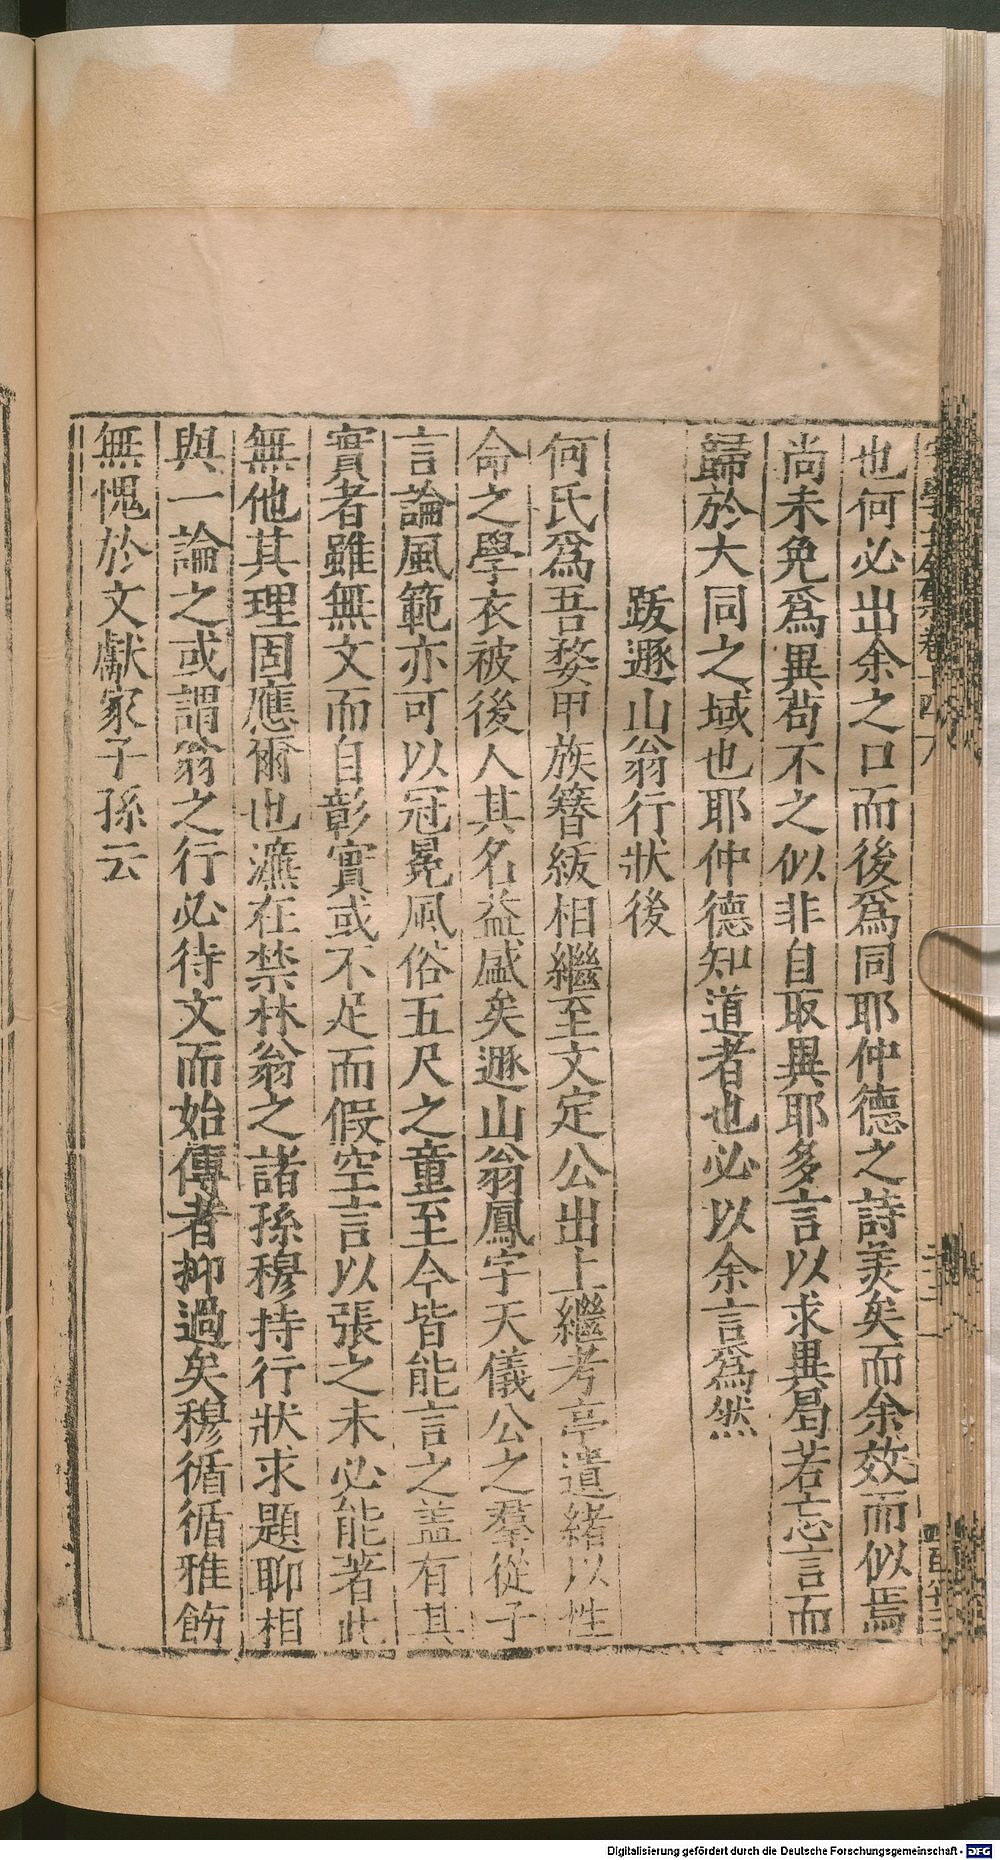 也何必出余之口而後爲同耶仲德之詩美矣而余效而似焉
尚未免爲異苟不之似非自取異耶多言以求異曷若忘言而
歸於大同之域也耶仲德知道者也必以余言爲然
跋遯山翁行狀後
何氏爲吾婺甲族簪紱相繼至文定公出上繼考亭遺緒以性
命之學衣被後人其名益盛矣遯山翁鳳字天儀公之羣從子
言論風範亦可以冠冕風俗五尺之童至今皆能言之蓋有其
實者雖無文而自彰實或不足而假空言以張之未必能著此
無他其理固應爾也濂在禁林翁之諸孫穆持行狀求題聊相
與一論之或謂翁之行必待文而始傳者抑過矣穆循循雅飭
無愧於文獻家子孫云
Digitalisierung gefördert durch die Deutsche Forschungsgemeinschaft - DFG